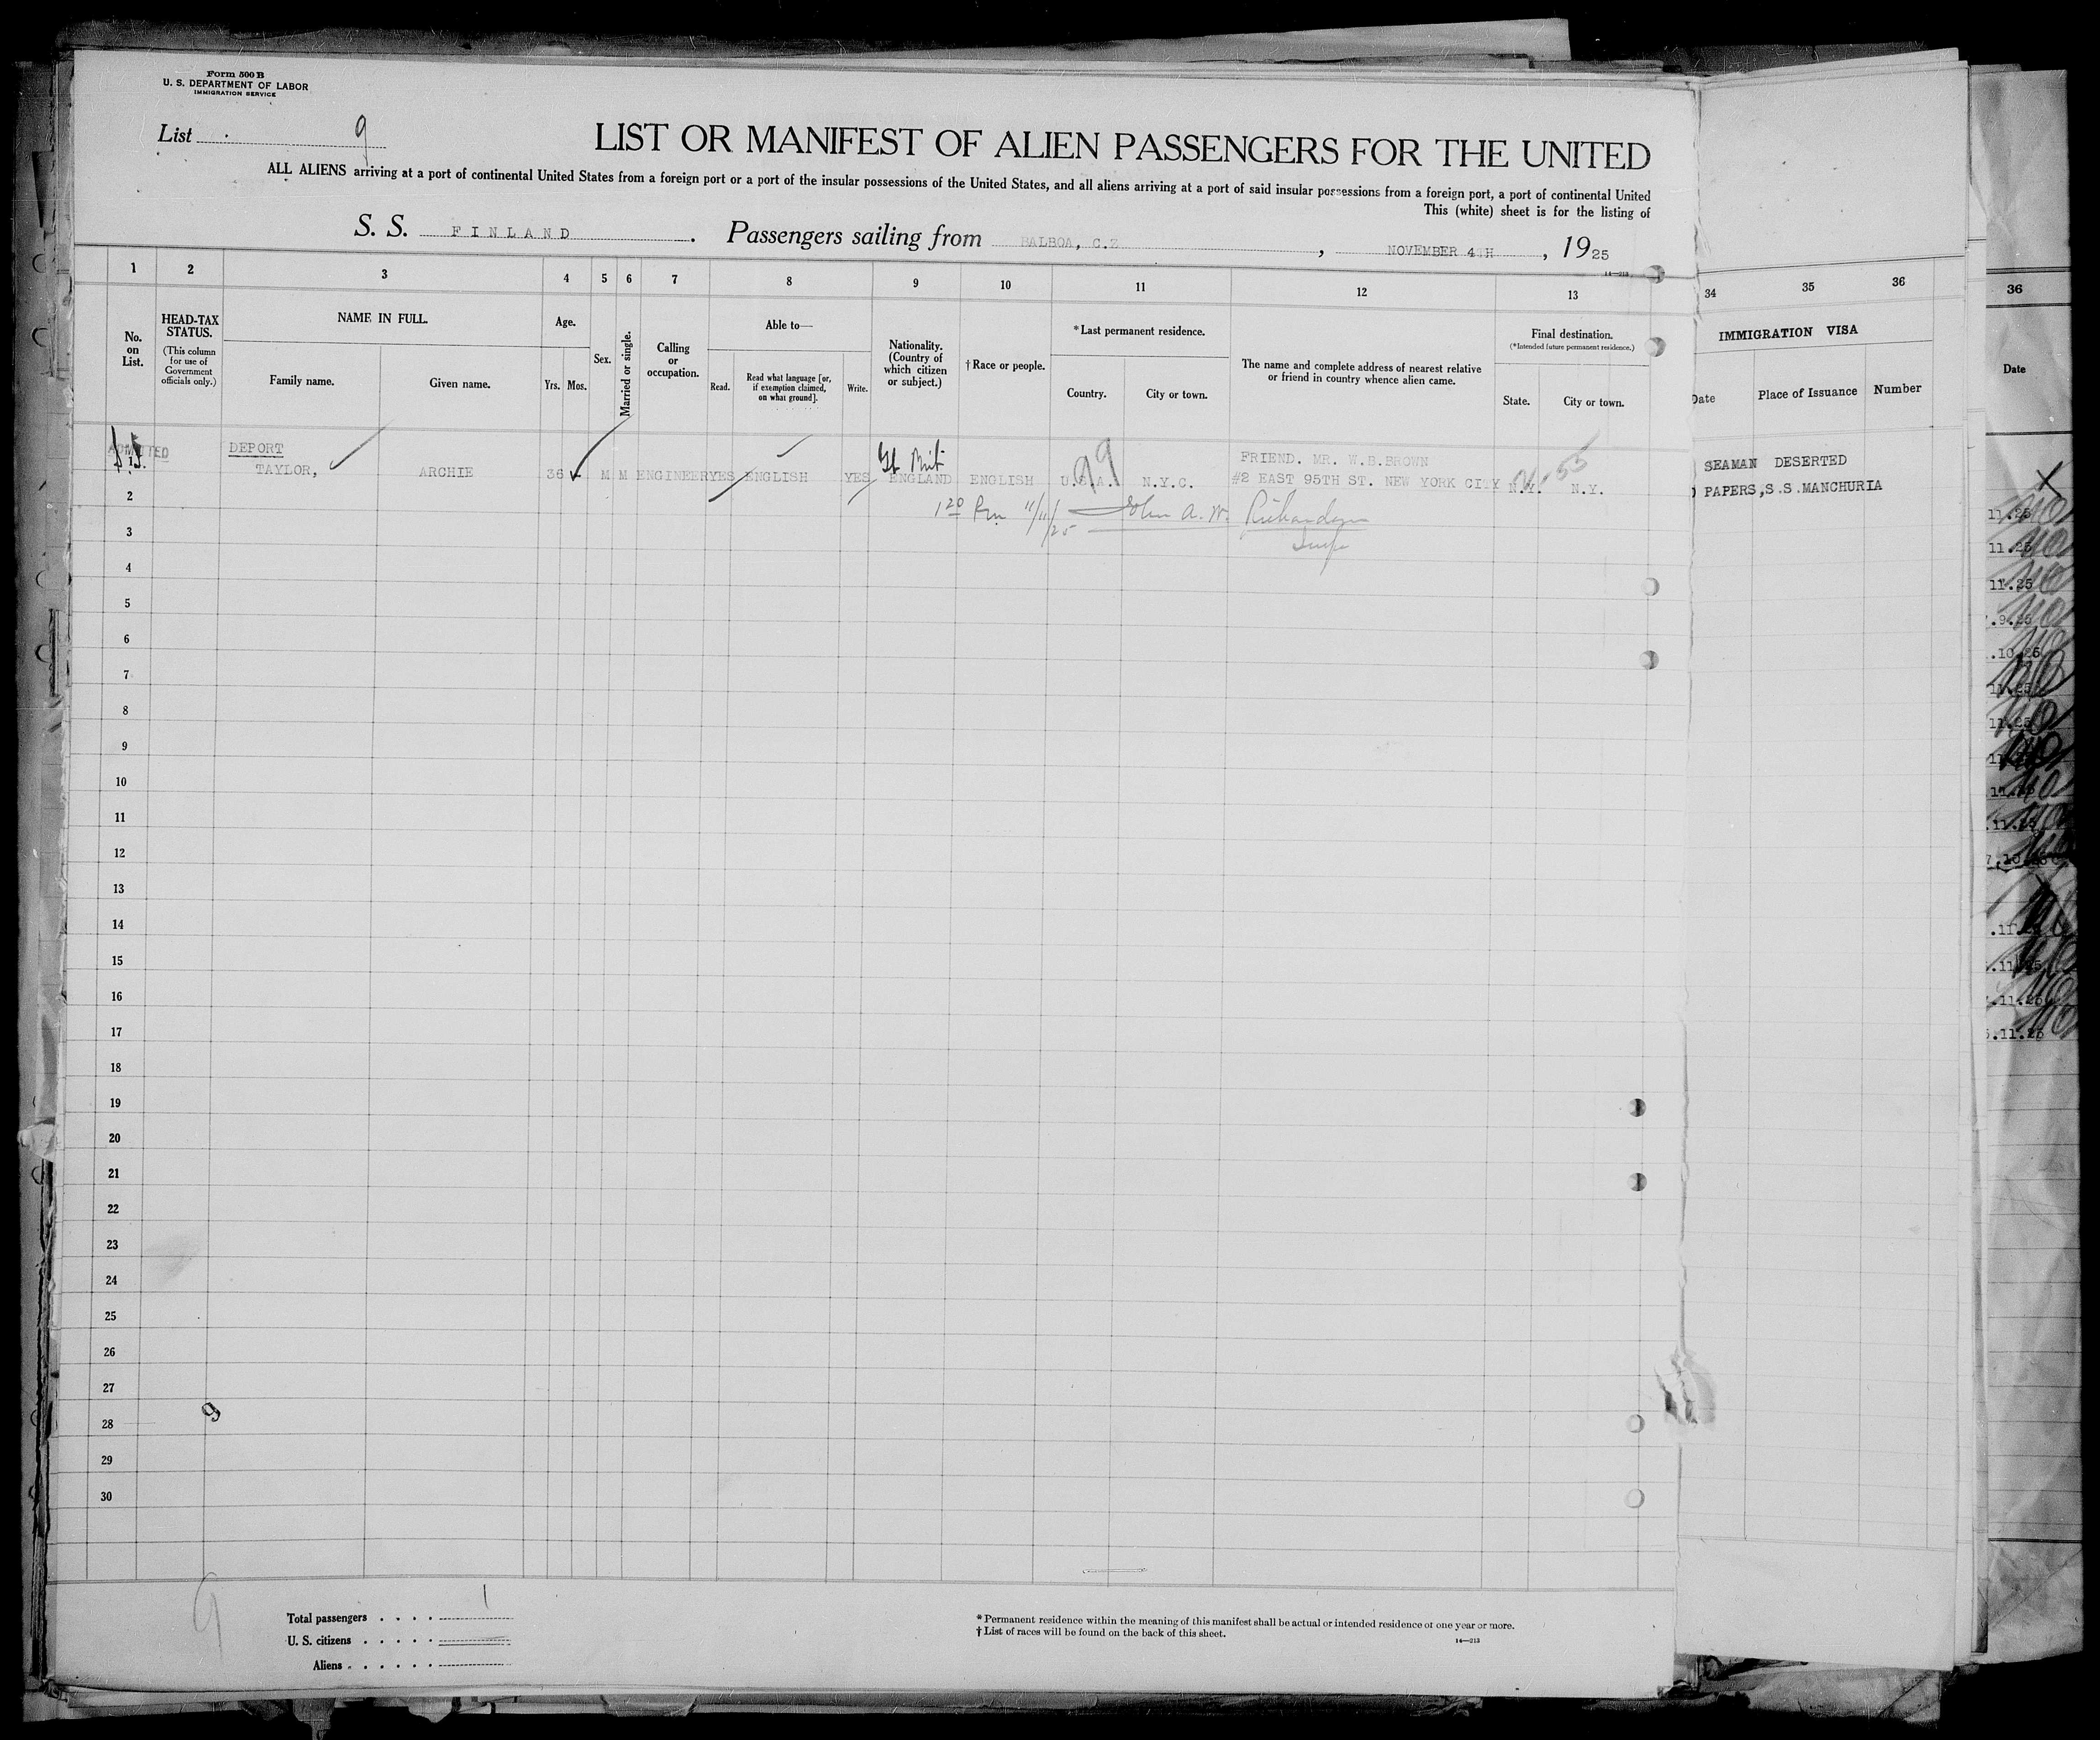 Form 500 B
U. S. DEPARTMENT OF LABOR
IMMIGRATION SERVICE
List 9
LIST OR MANIFEST OF ALIEN PASSENGERS FOR THE UNITED
ALL ALIENS arriving at a port of continental United States from a foreign port or a port of the insular possessions of the United States, and all aliens arriving at a port of said insular possessions from a foreign port, a port of continental United
This (white) sheet is for the listing of
S. S. FINLAND. Passengers sailing from BALBOA, C.Z, NOVEMBER 4TH, 1925
14—213
1 2 3 4 5 6 7 8 9 10 11 12 13
No. on List.
HEAD-TAX STATUS.
(This column for use of Government officials only.)
NAME IN FULL.
Family name.
Given name.
Age.
Yrs. Mos.
Sex.
Married or single.
Calling or occupation.
Able to—
Read.
Read what language [or, if exemption claimed, on what ground].
Write.
Nationality. (Country of which citizen or subject.)
† Race or people.
* Last permanent residence.
Country.
City or town.
The name and complete address of nearest relative or friend in country whence alien came.
Final destination.
(*Intended future permanent residence.)
State.
City or town.
34 35 36
IMMIGRATION VISA
Date
Place of Issuance
Number
36
Date
ADMITTED
DEPORT
Gt Brit
99
FRIEND. MR. W.B.BROWN
1 TAYLOR, ARCHIE 36 M M ENGINEER YES ENGLISH YES ENGLAND ENGLISH U.S.A. N.Y.C. #2 EAST 95TH ST. NEW YORK CITY N.Y. N.Y.
SEAMAN DESERTED
PAPERS, S.S.MANCHURIA
1 20 Pm 11/11/25 John A. W. Richardson
Insp
2
3
4
5
6
7
8
9
10
11
12
13
14
15
16
17
18
19
20
21
22
23
24
25
26
27
28
29
30
9
9
Total passengers . . . . 1
U. S. citizens . . . . .
Aliens . . . . . .
* Permanent residence within the meaning of this manifest shall be actual or intended residence of one year or more.
† List of races will be found on the back of this sheet.
14—213